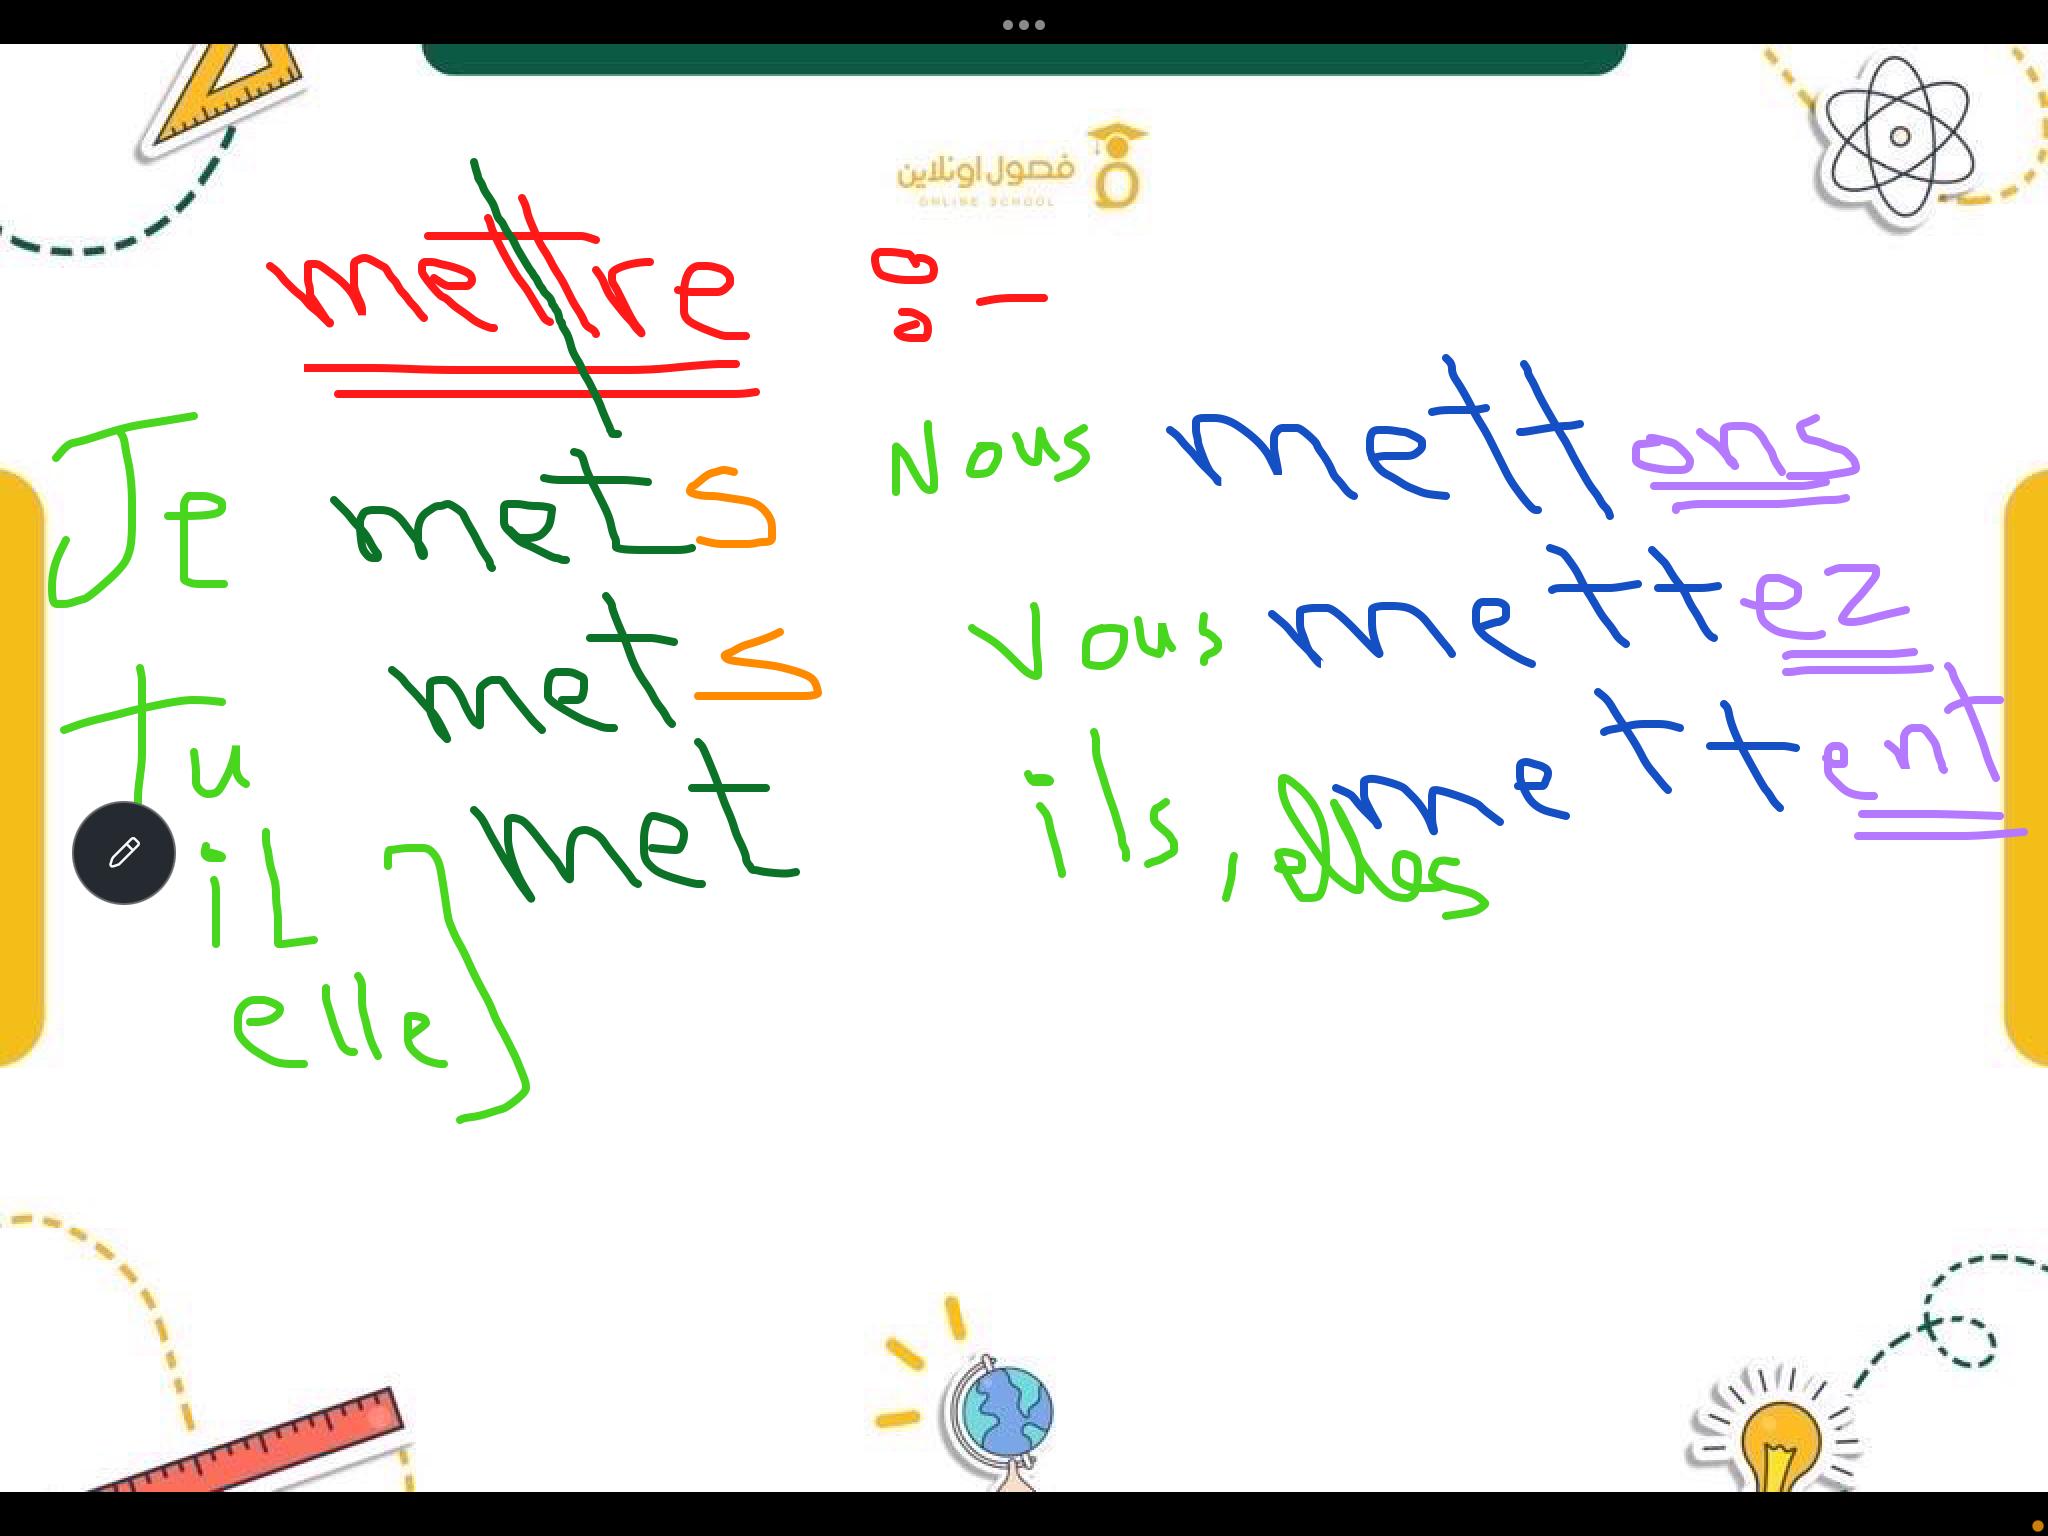 فصول اونلاين
ONLINE SCHOOL
mettre :-
Je mets
tu mets
iL met
elle
Nous mettons
Vous mettez
ils, elles mettent